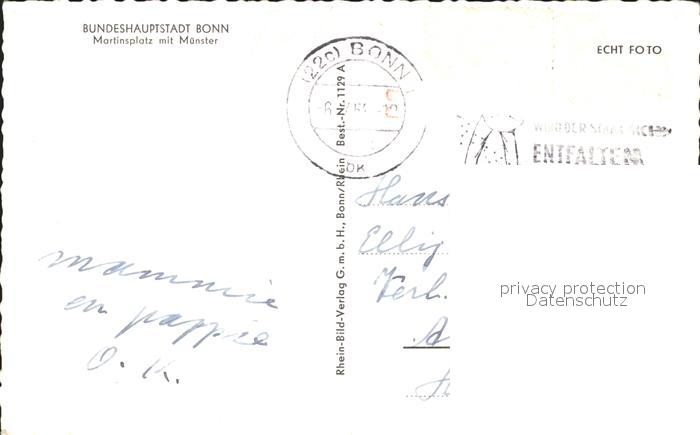 BUNDESHAUPTSTADT BONN
Martinsplatz mit Münster
ECHT FOTO
(22c) BONN
OK
ENTFALTEN
Rhein-Bild-Verlag G.m.b.H., Bonn/Rhein Best.-Nr. 1129 A
Hans
Verl.
A
mammie
en pappie
O. K.
privacy protection
Datenschutz